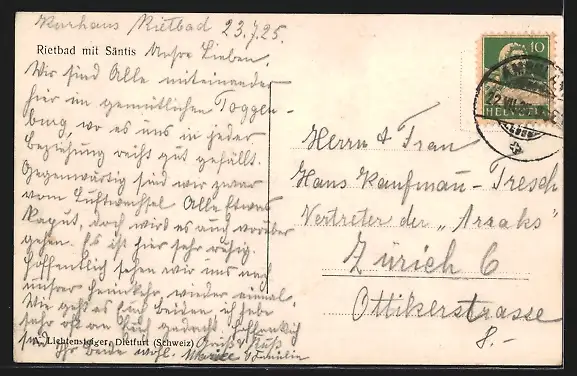 Kurhaus Rietbad 23.7.25.
Rietbad mit Säntis
Unsre Lieben.
Wir sind Alle miteinander
hier im gemütlichen Toggen-
burg, wo es uns in jeder
Beziehung recht gut gefällt.
Gegenwärtig sind wir zwar
vom Luftwechsel Alle etwas
kaput, doch wird es auch vorüber
gehen. Es ist hier sehr ruhig.
Hoffentlich sehen wir uns nach
unsrer Heimkehr wieder einmal.
Wie geht es Euch beiden ich habe
sehr oft an Euch gedacht. Hoffentlich
A. Lichtensteiger, Dietfurt (Schweiz)
Gruß & Kuß
sind Ihr beide wohl.
10
HELVETIA
Herrn & Frau
Hans Kaufmann-Tresch
Vertreter der „
Zürich 6
Ottikerstrasse
8.-